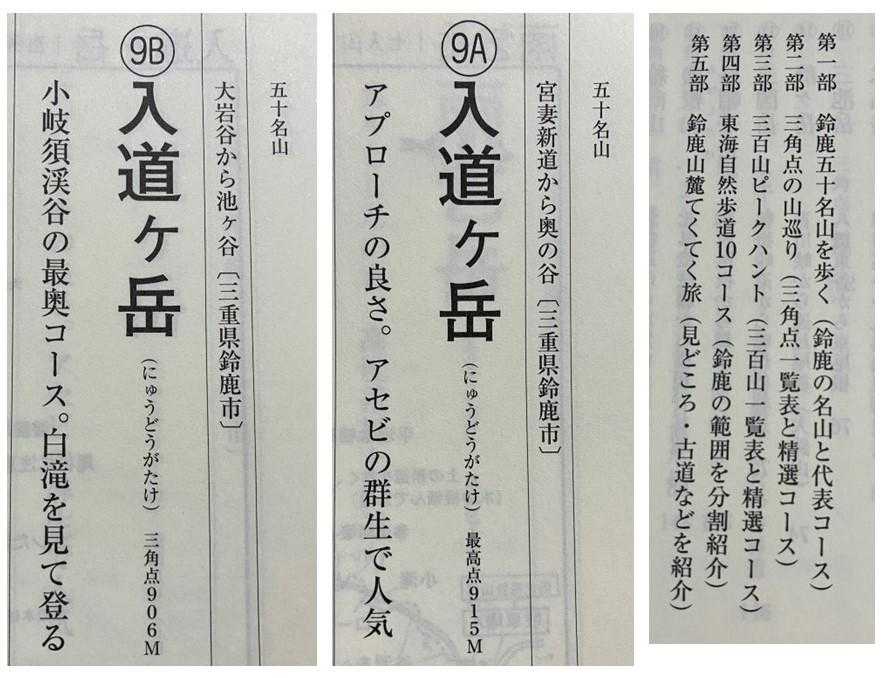 第一部 鈴鹿五十名山を歩く（鈴鹿の名山と代表コース）
第二部 三角点の山巡り（三角点一覧表と精選コース）
第三部 三百山ピークハント（三百山一覧表と精選コース）
第四部 東海自然歩道10コース（鈴鹿の範囲を分割紹介）
第五部 鈴鹿山麓てくてく旅（見どころ・古道などを紹介）
五十名山
宮妻新道から奥の谷〔三重県鈴鹿市〕
9A 入道ヶ岳（にゅうどうがたけ）最高点915M
アプローチの良さ。アセビの群生で人気
五十名山
大岩谷から池ヶ谷〔三重県鈴鹿市〕
9B 入道ヶ岳（にゅうどうがたけ）三角点906M
小岐須渓谷の最奥コース。白滝を見て登る